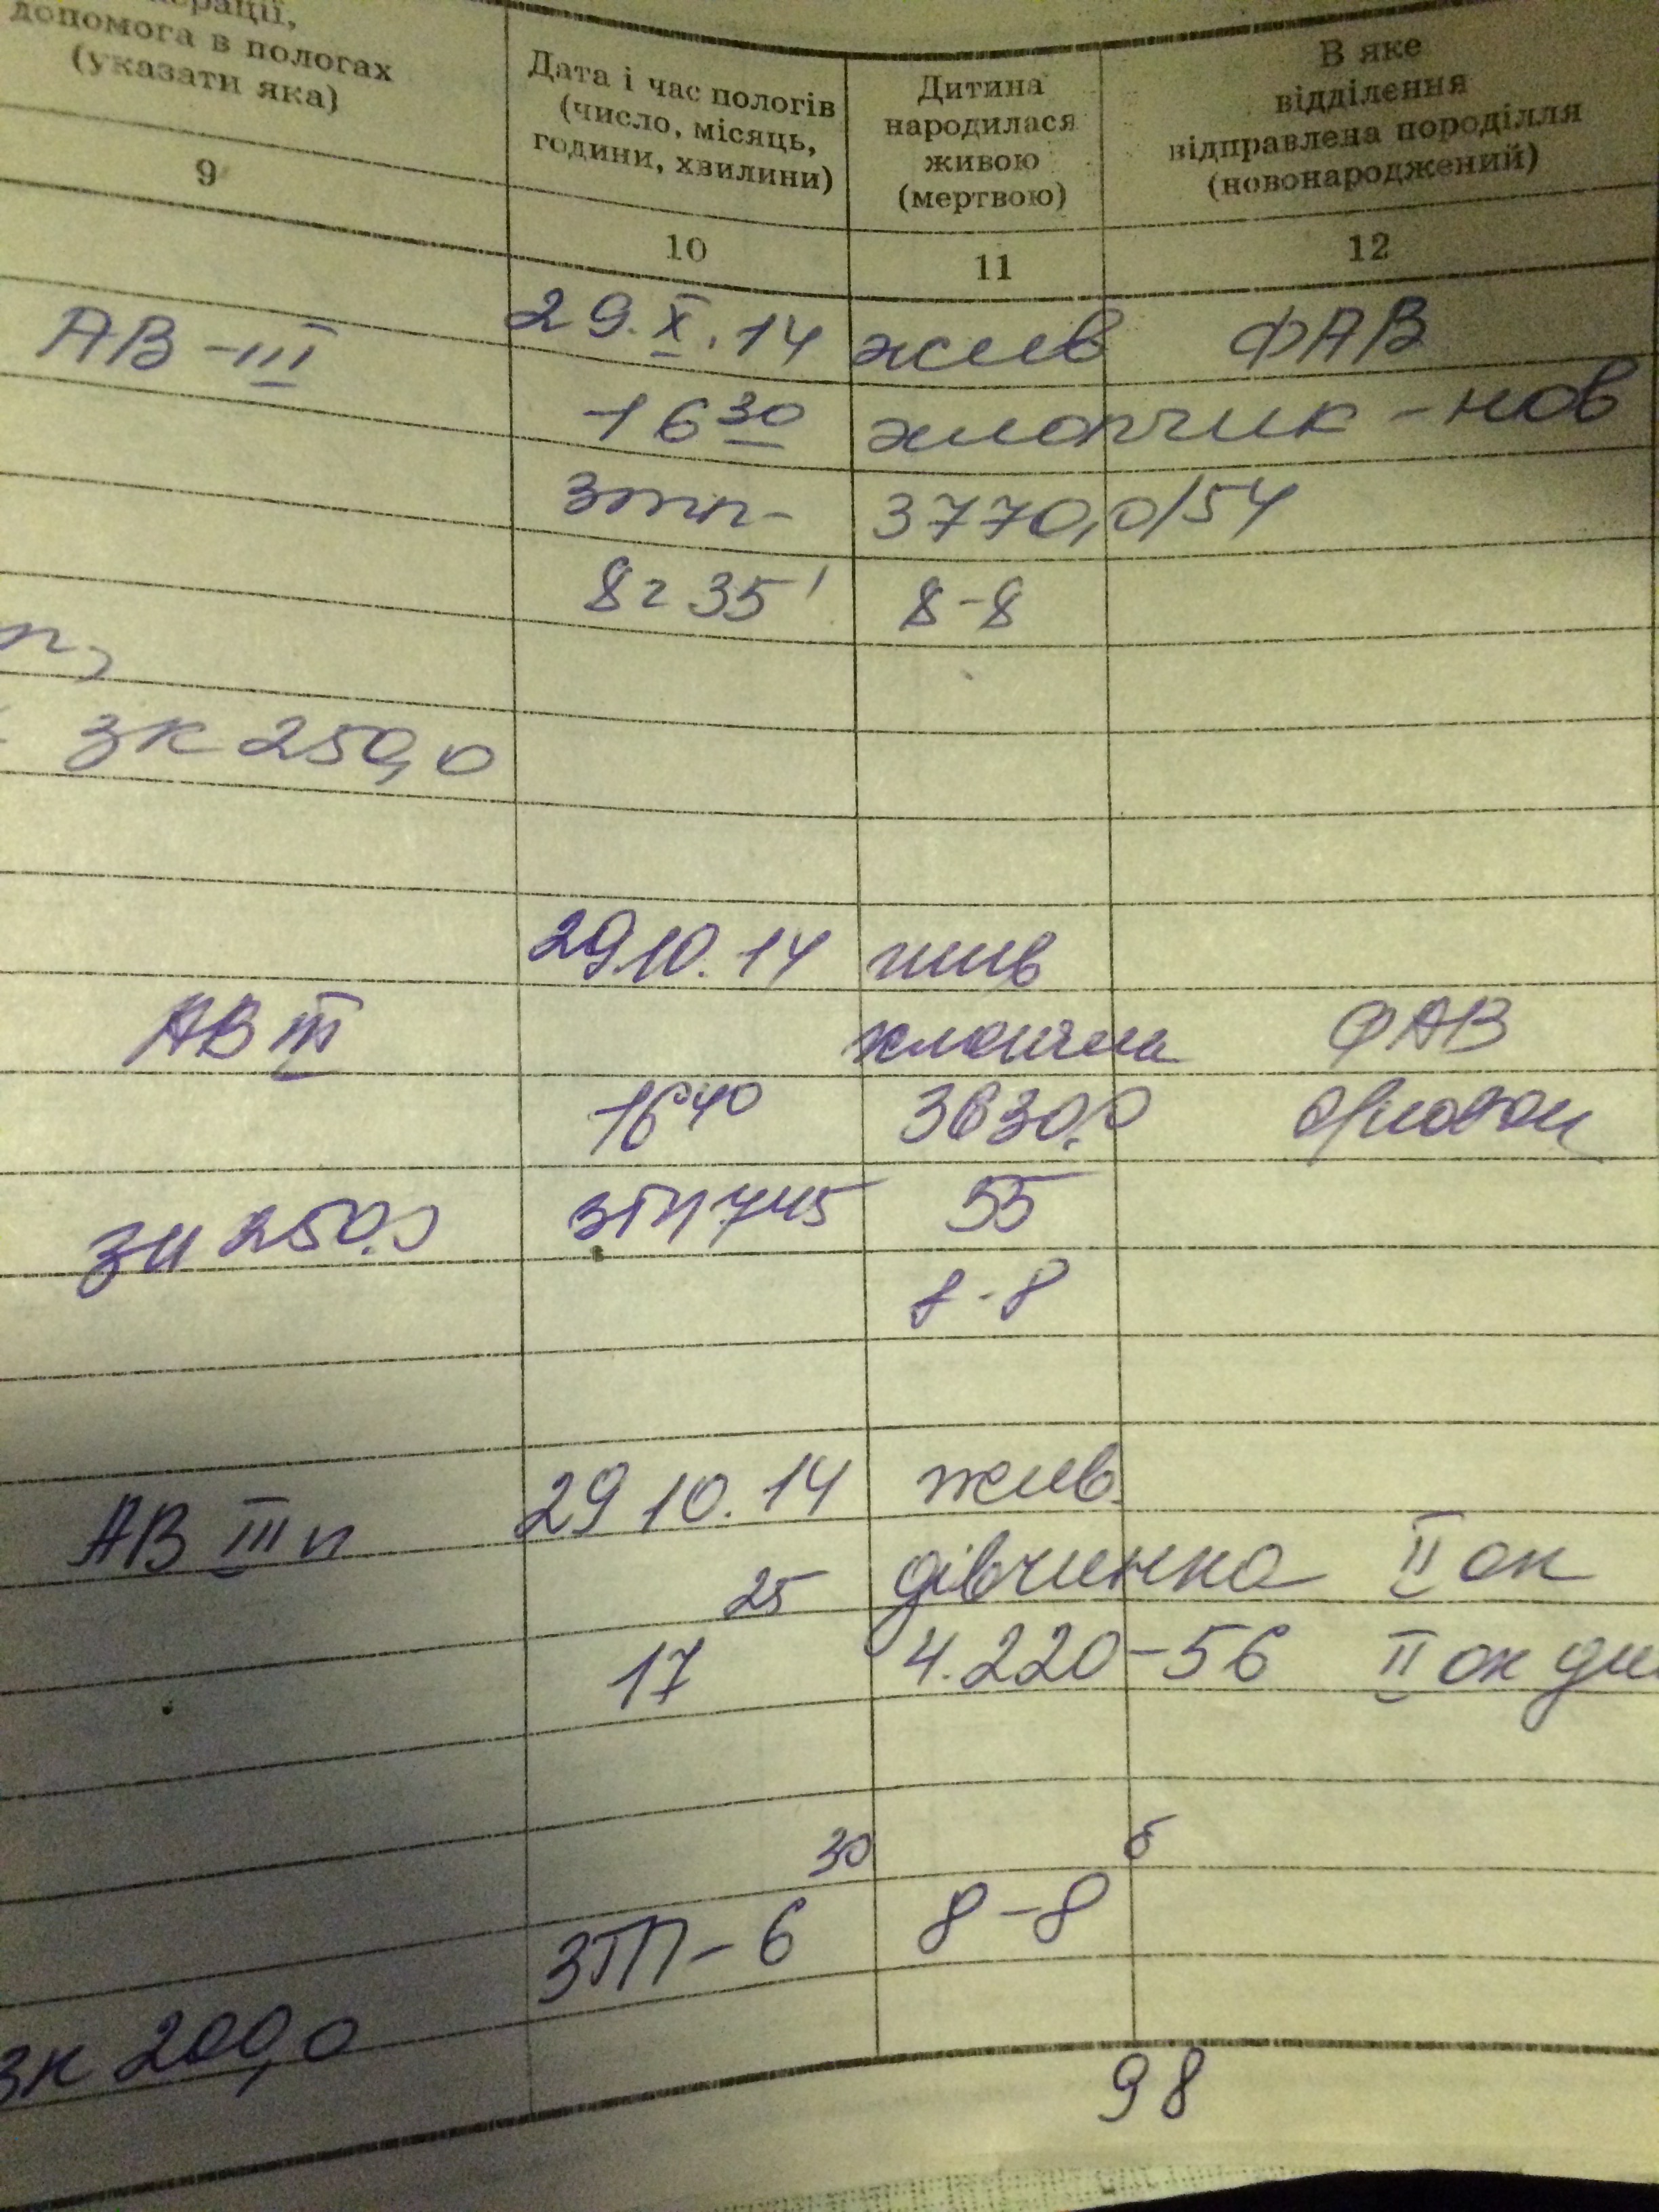 допомога в пологах
(указати яка)
Дата і час пологів
(число, місяць,
години, хвилини)
Дитина
народилася
живою
(мертвою)
В яке
відділення
відправлена породілля
(новонароджений)
9
10
11
12
АВ-III 29.X.14 жив ФАВ
16 30 хлопчик - нов
зтп- 3770,0/54
8г 35' 8-8
зк 250,0
29.10.14 жив
АВ III ФАВ
16 40 3630,0
250,0 ЗТП 7 45 55
8-8
АВ III п 29 10.14 жив.
25 дівчинка II ак
17 4.220-56 II ак
30 б
ЗТП-6 8-8
зк 200,0
98